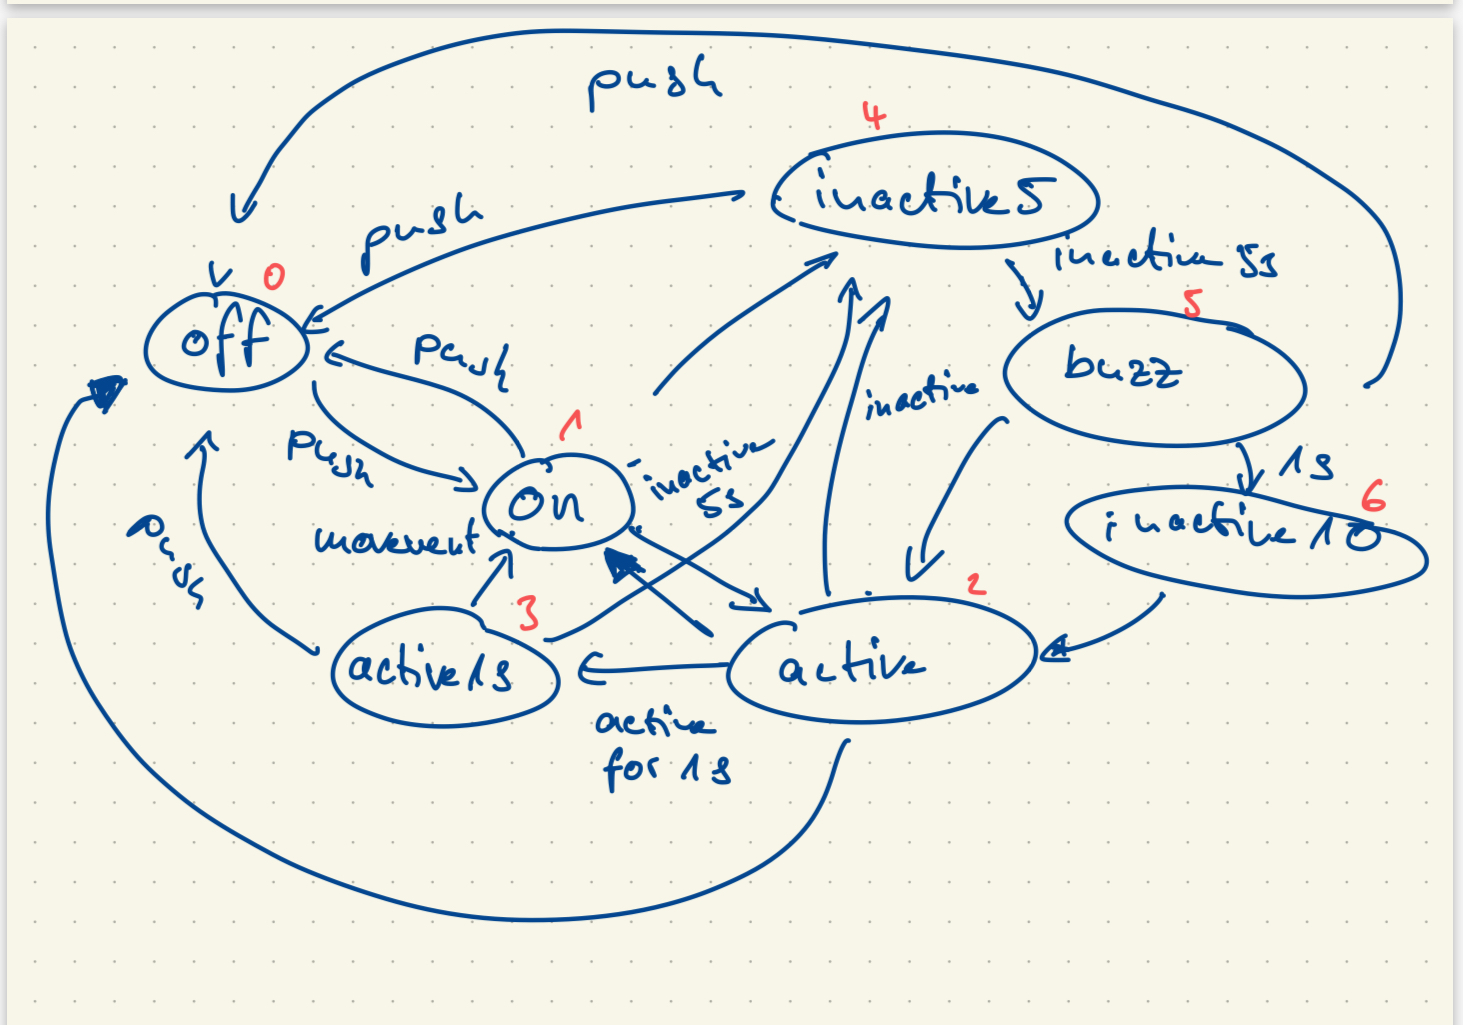 push
4
inactive5
push
inactive 5s
0
off
5
buzz
push
inactive
1
push
inactive
5s
1s
6
on
inactive 10
movement
push
3
2
active1s
active
active
for 1s